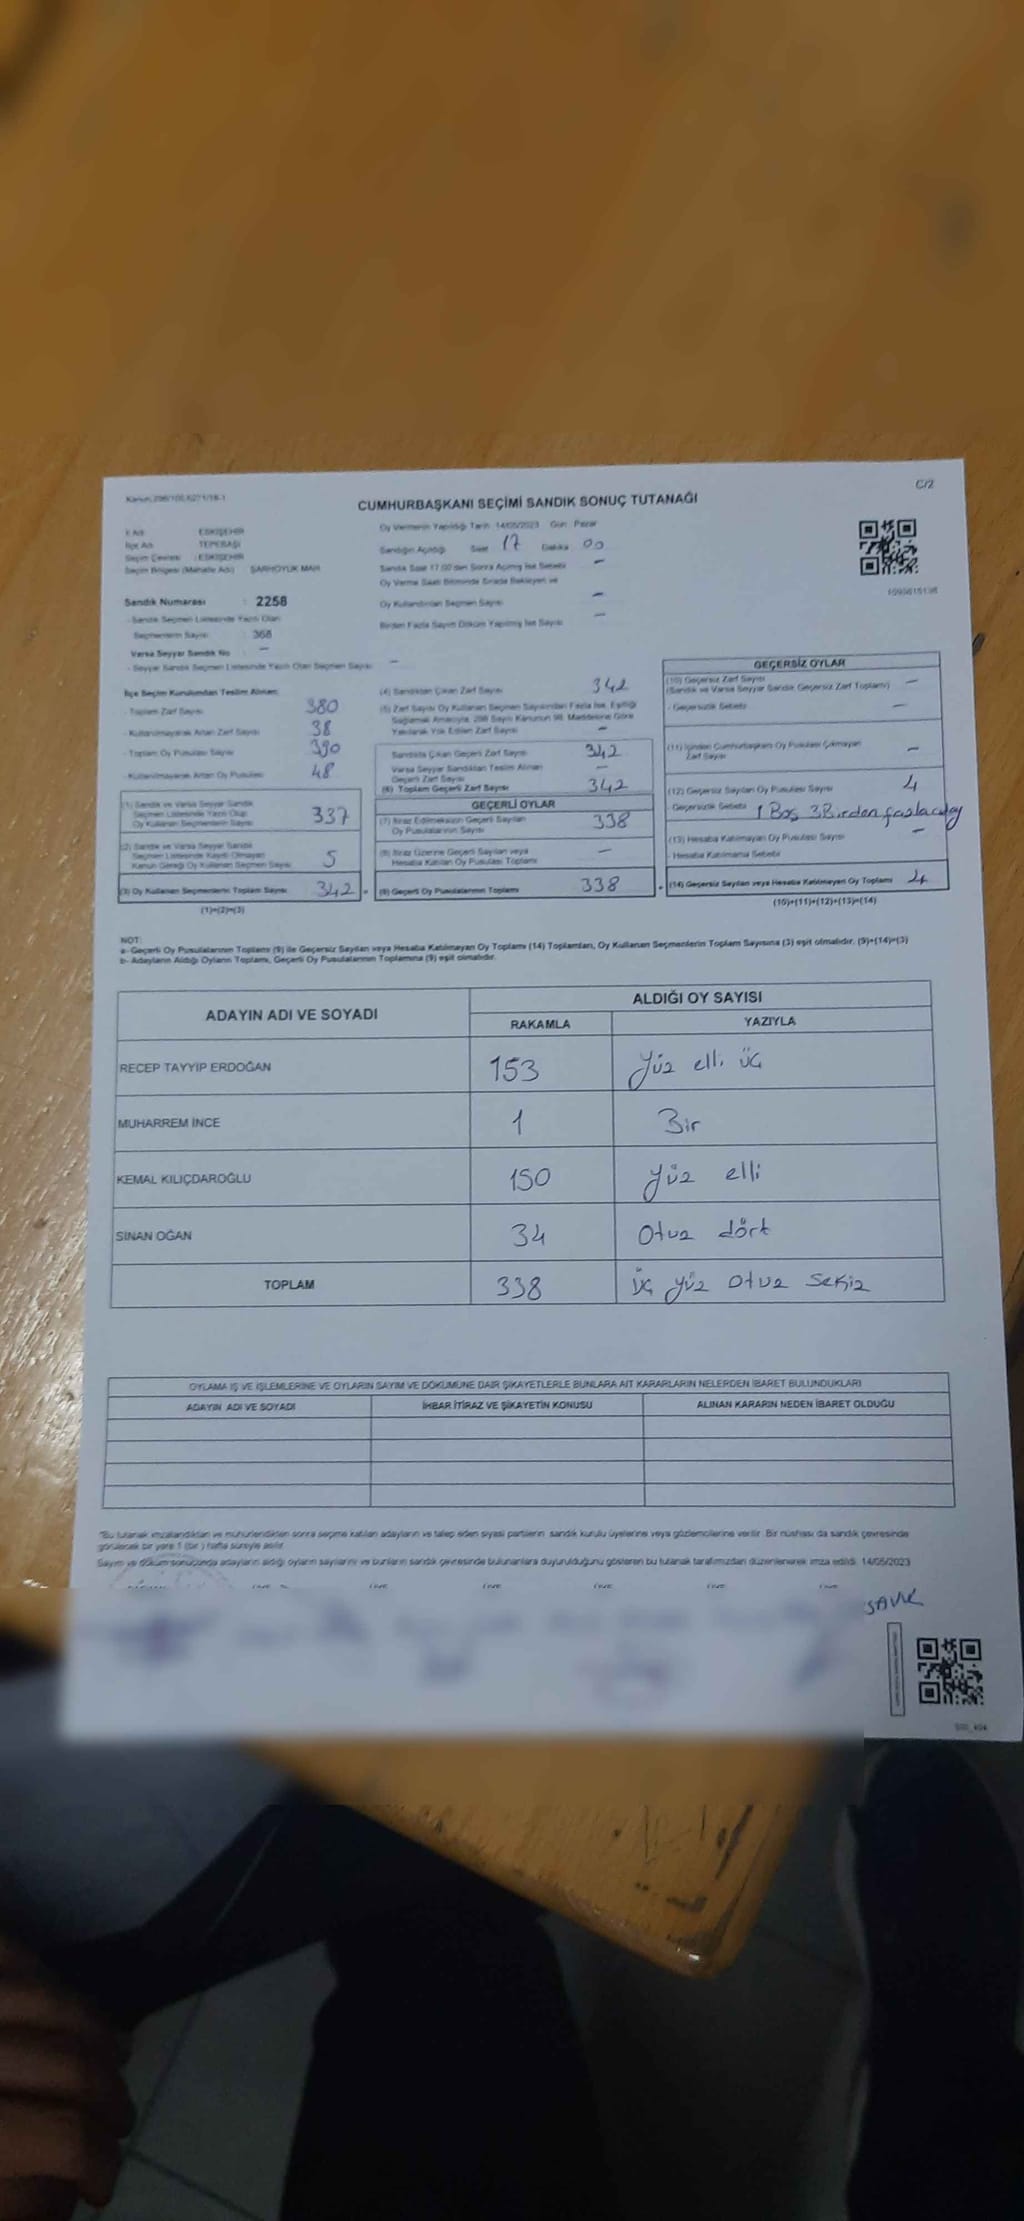 C/2
CUMHURBAŞKANI SEÇİMİ SANDIK SONUÇ TUTANAĞI
İl Adı : ESKİŞEHİR
İlçe Adı : TEPEBAŞI
Seçim Çevresi : ESKİŞEHİR
Seçim Bölgesi (Mahalle Adı) : ŞARHÖYÜK MAH
Sandık Numarası : 2258
- Sandık Seçmen Listesinde Yazılı Olan
Seçmenlerin Sayısı : 368
Varsa Seyyar Sandık No : —
- Seyyar Sandık Seçmen Listesinde Yazılı Olan Seçmen Sayısı —
Oy Vermenin Yapıldığı Tarih 14/05/2023 Gün Pazar
Sandığın Açıldığı Saat 17 Dakika 00
Sandık Saat 17.00'den Sonra Açılmış İse Sebebi —
Oy Verme Saati Bitiminde Sırada Bekleyen ve
Oy Kullandırılan Seçmen Sayısı —
Birden Fazla Sayım Döküm Yapılmış İse Sayısı —
İlçe Seçim Kurulundan Teslim Alınan
- Toplam Zarf Sayısı 380
- Kullanılmayarak Artan Zarf Sayısı 38
- Toplam Oy Pusulası Sayısı 390
- Kullanılmayarak Artan Oy Pusulası 48
(1) Sandık ve Varsa Seyyar Sandık
Seçmen Listesinde Yazılı Olup
Oy Kullanan Seçmenlerin Sayısı 337
(2) Sandık ve Varsa Seyyar Sandık
Seçmen Listesinde Kaydı Olmayan
Kanun Gereği Oy Kullanan Seçmen Sayısı 5
(3) Oy Kullanan Seçmenlerin Toplam Sayısı 342 =
(1)+(2)=(3)
(4) Sandıktan Çıkan Zarf Sayısı 342
(5) Zarf Sayısı Oy Kullanan Seçmen Sayısından Fazla İse, Eşitliği
Sağlamak Amacıyla, 298 Sayılı Kanunun 98. Maddesine Göre
Yakılarak Yok Edilen Zarf Sayısı —
Sandıkta Çıkan Geçerli Zarf Sayısı 342
Varsa Seyyar Sandıktan Teslim Alınan
Geçerli Zarf Sayısı —
(6) Toplam Geçerli Zarf Sayısı 342
GEÇERLİ OYLAR
(7) İtiraz Edilmeksizin Geçerli Sayılan
Oy Pusulalarının Sayısı 338
(8) İtiraz Üzerine Geçerli Sayılan veya
Hesaba Katılan Oy Pusulası Toplamı —
(9) Geçerli Oy Pusulalarının Toplamı 338 +
GEÇERSİZ OYLAR
(10) Geçersiz Zarf Sayısı
(Sandık ve Varsa Seyyar Sandık Geçersiz Zarf Toplamı) —
- Geçersizlik Sebebi —
(11) İçinden Cumhurbaşkanı Oy Pusulası Çıkmayan
Zarf Sayısı —
(12) Geçersiz Sayılan Oy Pusulası Sayısı 4
- Geçersizlik Sebebi 1 Boş 3 Birden fazla aday
(13) Hesaba Katılmayan Oy Pusulası Sayısı —
- Hesaba Katılmama Sebebi
(14) Geçersiz Sayılan veya Hesaba Katılmayan Oy Toplamı 4
(10)+(11)+(12)+(13)=(14)
NOT:
a- Geçerli Oy Pusulalarının Toplamı (9) ile Geçersiz Sayılan veya Hesaba Katılmayan Oy Toplamı (14) Toplamları, Oy Kullanan Seçmenlerin Toplam Sayısına (3) eşit olmalıdır. (9)+(14)=(3)
b- Adayların Aldığı Oyların Toplamı, Geçerli Oy Pusulalarının Toplamına (9) eşit olmalıdır.
ADAYIN ADI VE SOYADI ALDIĞI OY SAYISI
RAKAMLA YAZIYLA
RECEP TAYYİP ERDOĞAN 153 yüz elli üç
MUHARREM İNCE 1 Bir
KEMAL KILIÇDAROĞLU 150 yüz elli
SİNAN OĞAN 34 otuz dört
TOPLAM 338 üç yüz otuz sekiz
OYLAMA İŞ VE İŞLEMLERİNE VE OYLARIN SAYIM VE DÖKÜMÜNE DAİR ŞİKAYETLERLE BUNLARA AİT KARARLARIN NELERDEN İBARET BULUNDUKLARI
ADAYIN ADI VE SOYADI İHBAR İTİRAZ VE ŞİKAYETİN KONUSU ALINAN KARARIN NEDEN İBARET OLDUĞU
"Bu tutanak imzalandıktan ve mühürlendikten sonra seçime katılan adayların ve talep eden siyasi partilerin sandık kurulu üyelerine veya gözlemcilerine verilir. Bir nüshası da sandık çevresinde
görülecek bir yere 1 (bir) hafta süreyle asılır.
Sayım ve döküm sonucunda adayların aldığı oyların sayılarını ve bunların sandık çevresinde bulunanlara duyurulduğunu gösteren bu tutanak tarafımızdan düzenlenerek imza edildi. 14/05/2023